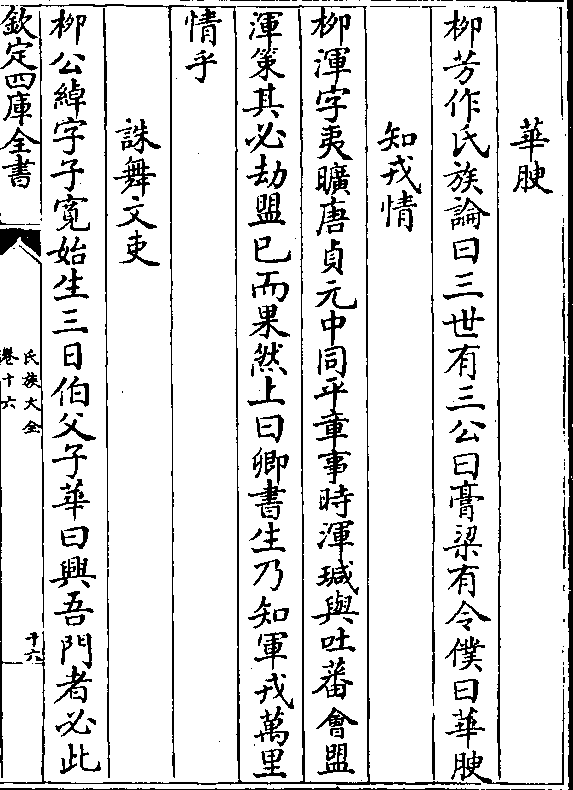 華腴
柳芳作氏族論曰三世有三公曰膏梁有令僕曰華腴
知戎情
柳渾字夷曠唐貞元中同平章事時渾瑊與吐蕃會盟
渾策其必劫盟已而果然上曰卿書生乃知軍戎萬里
情乎
誅舞文吏
柳公綽字子寛始生三日伯父子華曰興吾門者必此
欽定四庫全書
氏族大全
卷十六
十六